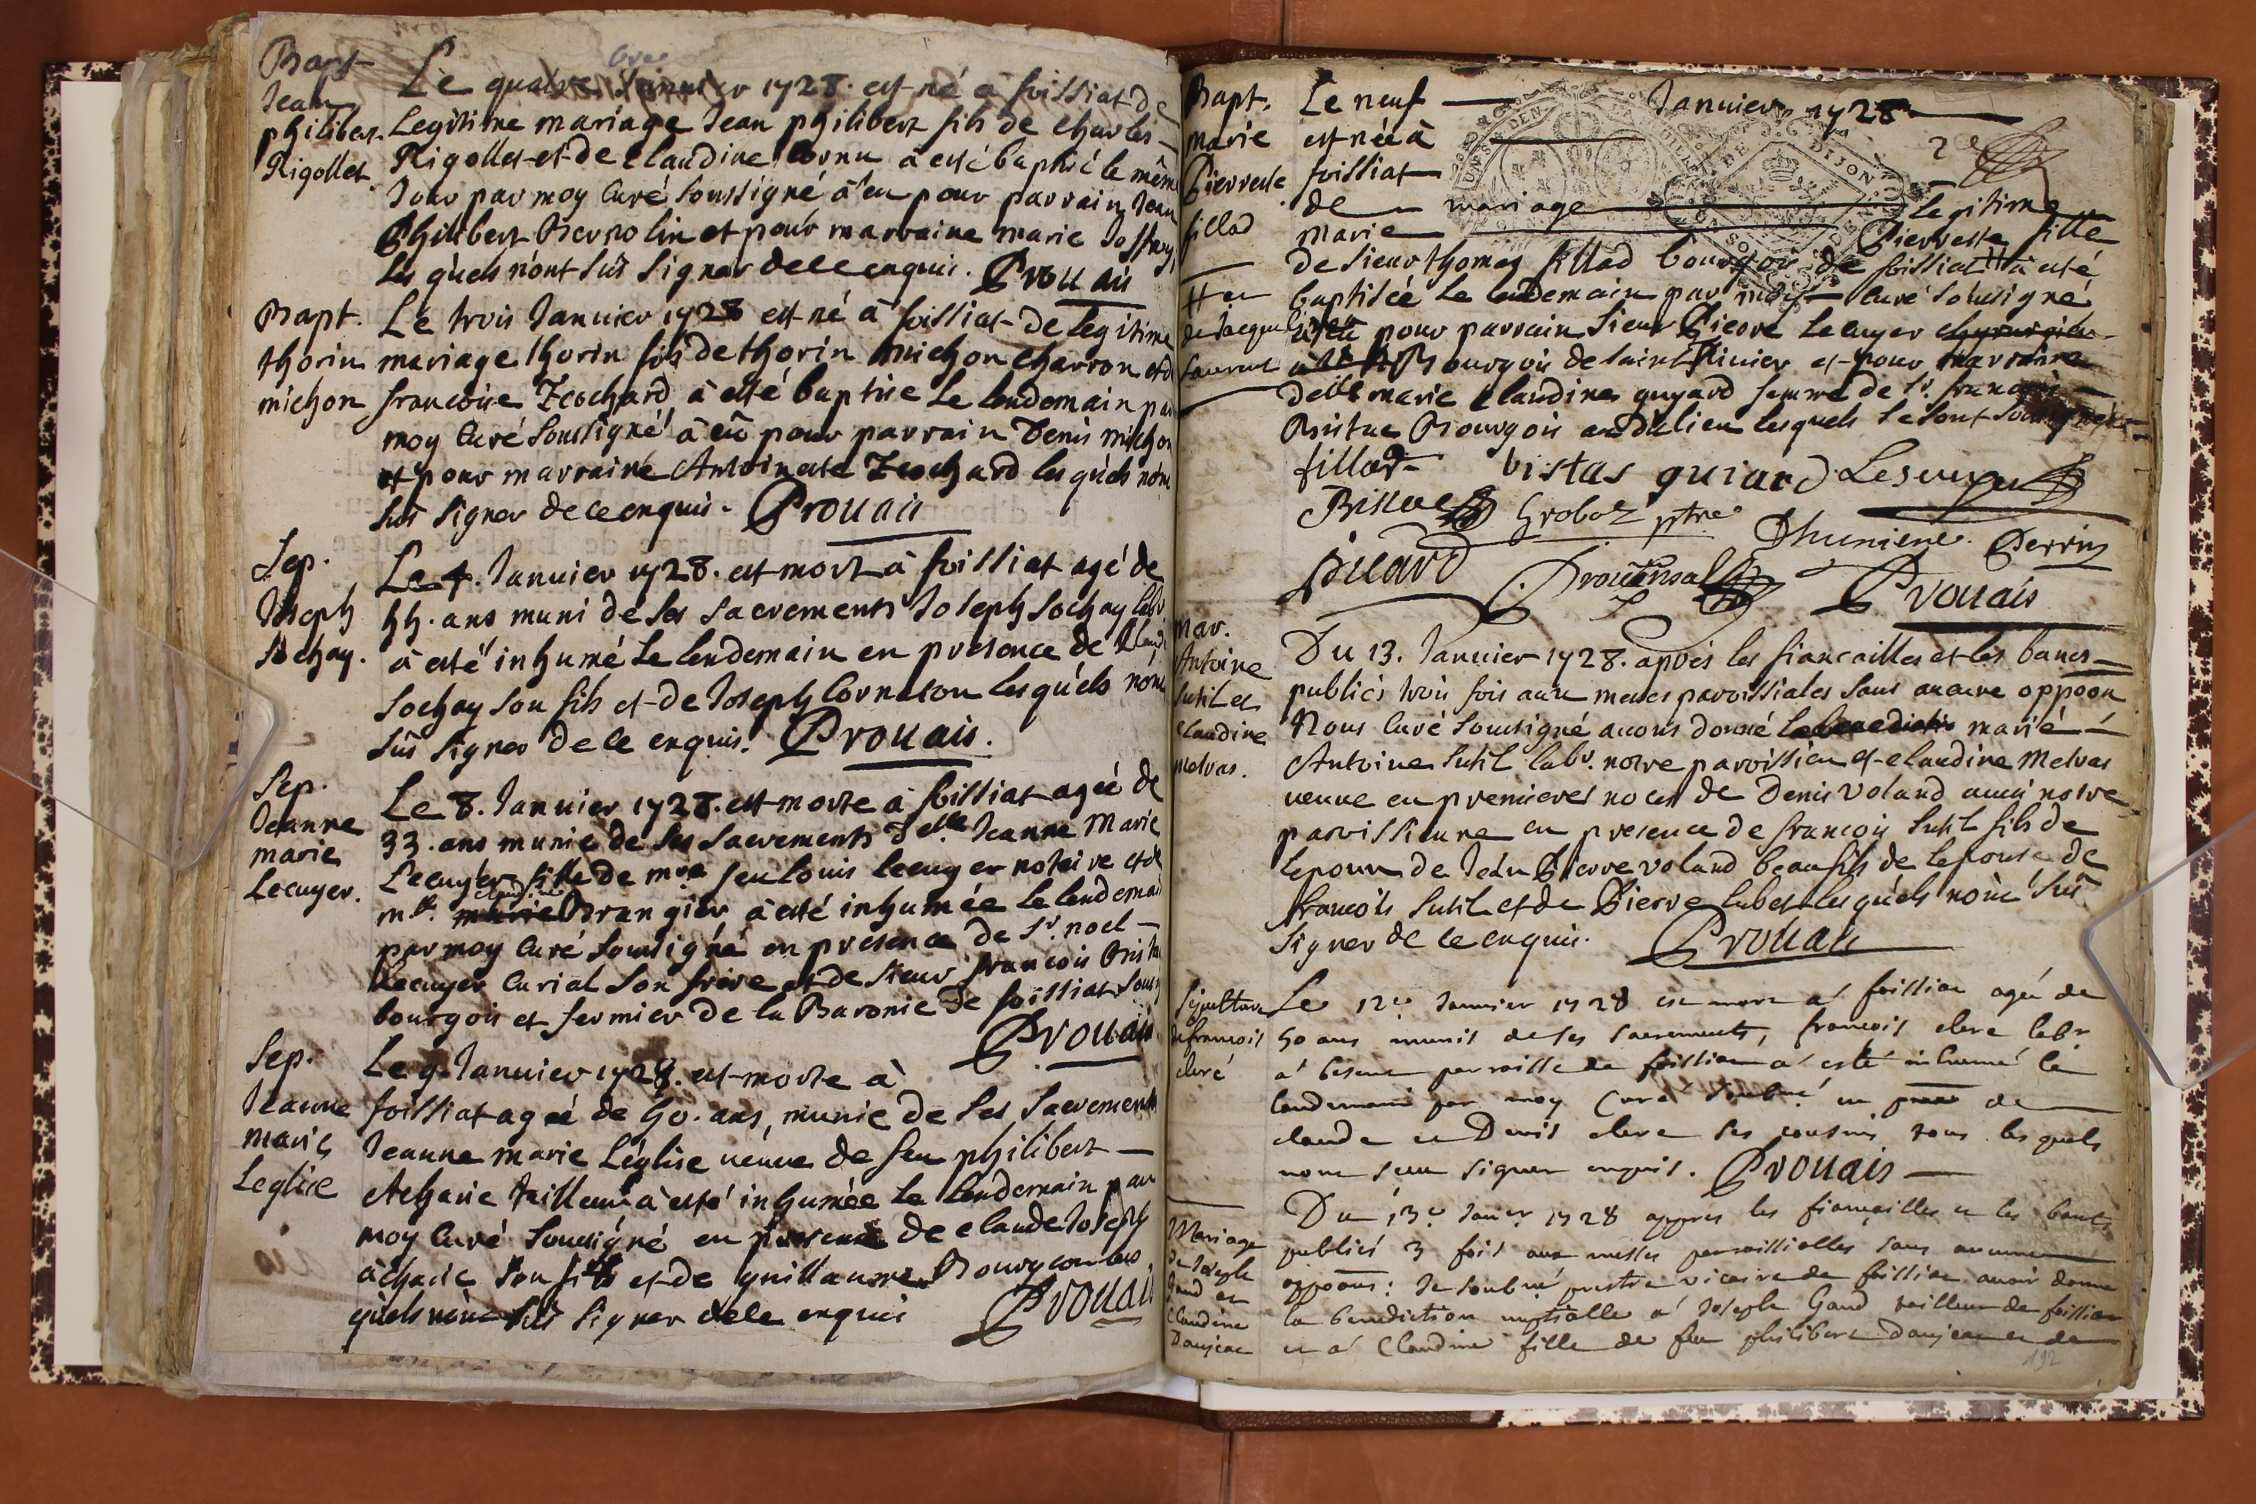 Bapt
Jean
philibert
Rigollet
Le quatre Janvier 1728. est né à foissiat de
Legitime mariage Jean philibert fils de Charles
Rigollet et de Claudine Cornu à esté baptisé le même
Jour par moy Curé soussigné à eu pour parrain Jean
Philibert et pour marraine marie Joffray
Les quels n'ont sçu signer de ce enquis. Prouais
Bapt.
thorin
michon
Le trois Janvier 1728 est né à foissiat de legitime
mariage thorin fils de thorin michon charron et de
francoise Trochard à esté baptisé Le lendemain par
moy Curé soussigné à eu pour parrain Denis michon
et pour marraine Antoinette Trochard les quels nont
sus signer de ce enquis. Prouais
Sep.
Joseph
Sochay.
Le 4. Janvier 1728. est mort à foissiat agé de
55. ans muni de ses sacrements Joseph Sochay labr
à esté inhumé Le lendemain en presence de Claude
Sochay son fils et de Joseph Corneton lesquels nont
sus signer de ce enquis. Prouais.
Sep.
Jeanne
marie
Lecuyer.
Le 8. Janvier 1728. est morte à foissiat ageé de
33. ans munie de ses sacrements delle Jeanne Marie
Lecuyer fille de mre feu Louis Lecuyer notaire et de
mlle claudine à esté inhumée Le lendemain
par moy Curé soussigné en presence de Sr. noel
Lecuyer Curial son frere et de sieur francois Britue
bourgois et fermier de la Baronie de foissiat
Prouais
Sep.
Jeanne
marie
Leglise
Le 9. Janvier 1728. est morte à
foissiat ageé de 50. ans, munie de ses Sacrements
Jeanne marie Léglise veuve de feu philibert
Acharie tailleur à esté inhumée Le lendemain par
moy Curé soussigné en presence de claude Joseph
àcharie son fils et de guillaume Bourgeon les
quels nont sus signer de ce enquis Prouais
Bapt.
marie
Pierrette
fillod
Le neuf Janvier 1728
est née à
foissiat
de mariage Legitime
marie Pierrette fille
de Sieur thomas fillod bourgois de foissiat à esté
et
de Jacqueline
Laurent
baptiséé Le lendemain par moy Curé soussigné
à eu pour parrain Sieur Pierre Lecuyer
Bourgois de saint et pour marraine
delle marie Claudine guyard femme de Sr. francois
Britue Bourgois audit lieu lesquels se sont soussignés
fillod vistas guiard Lescuyer
Britue Groboz ptre Dhuniere Perrin
Picard Prouensal Prouais
Mar.
Antoine
Sutil et
Claudine
Melvas.
Du 13. Janvier 1728. aprés les fiancailles et les bancs
publiés trois fois aux messes paroissiales sans aucune oppoon
Nous Curé soussigné avons donné marié
Antoine Sutil labr. notre paroissien et claudine Melvas
veuve en premieres noces de Denis Voland aussi notre
paroissienne en presence de francois Sutil fils de
lepoux de Jean Pierre Voland beaufils de lepouse de
francois Sutil et de Pierre lubet lesquels nont sus
signer de ce enquis. Prouais
Sepulture
de francois
clerc
Le 12e Janvier 1728 est mort à foissiat agé de
50 ans munis de ses sacrements, francois clerc labr
à parroisse de foissiat a esté inhumé le
lendemain par moy Curé soubné en pnce de
claude et Denis clerc ses cousins tous lesquels
nont sceu signer enquis. Prouais
Mariage
de Joseph
Gaud et
Claudine
Danjean
Du 13e Janer 1728 appres les fiançailles et les bancts
publiés 3 fois aux messes parroissialles sans aucune
oppoons: Je soubné prestre vicaire de foissiat avoir donné
la benediction nuptialle a Joseph Gaud tailleur de foissiat
et a Claudine fille de feu philibert Danjean et de
192